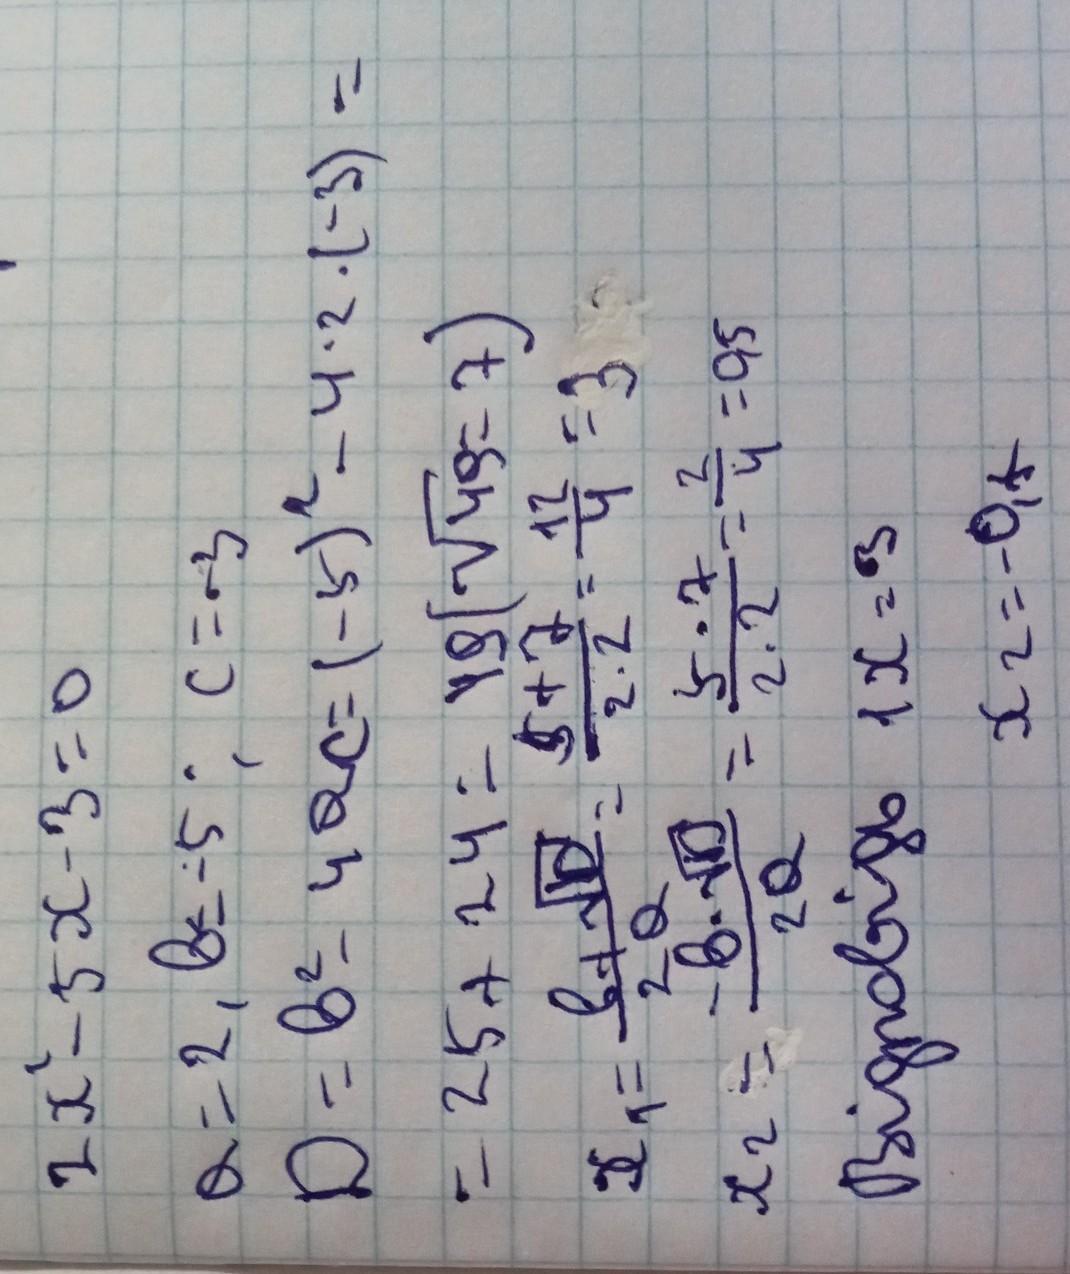 2x² - 5x - 3 = 0
a = 2, b = -5; c = -3
D = b² - 4ac = (-5)² - 4·2·(-3) =
= 25 + 24 = 49 (√49 = 7)
x₁ = b + √D / 2a = 5 + 7 / 2·2 = 12 / 4 = 3
x₂ = -b · √D / 2a = 5 · 7 / 2·2 = 2 / 4 = 0,5
Відповідь 1x = 3
x2 = -0,5